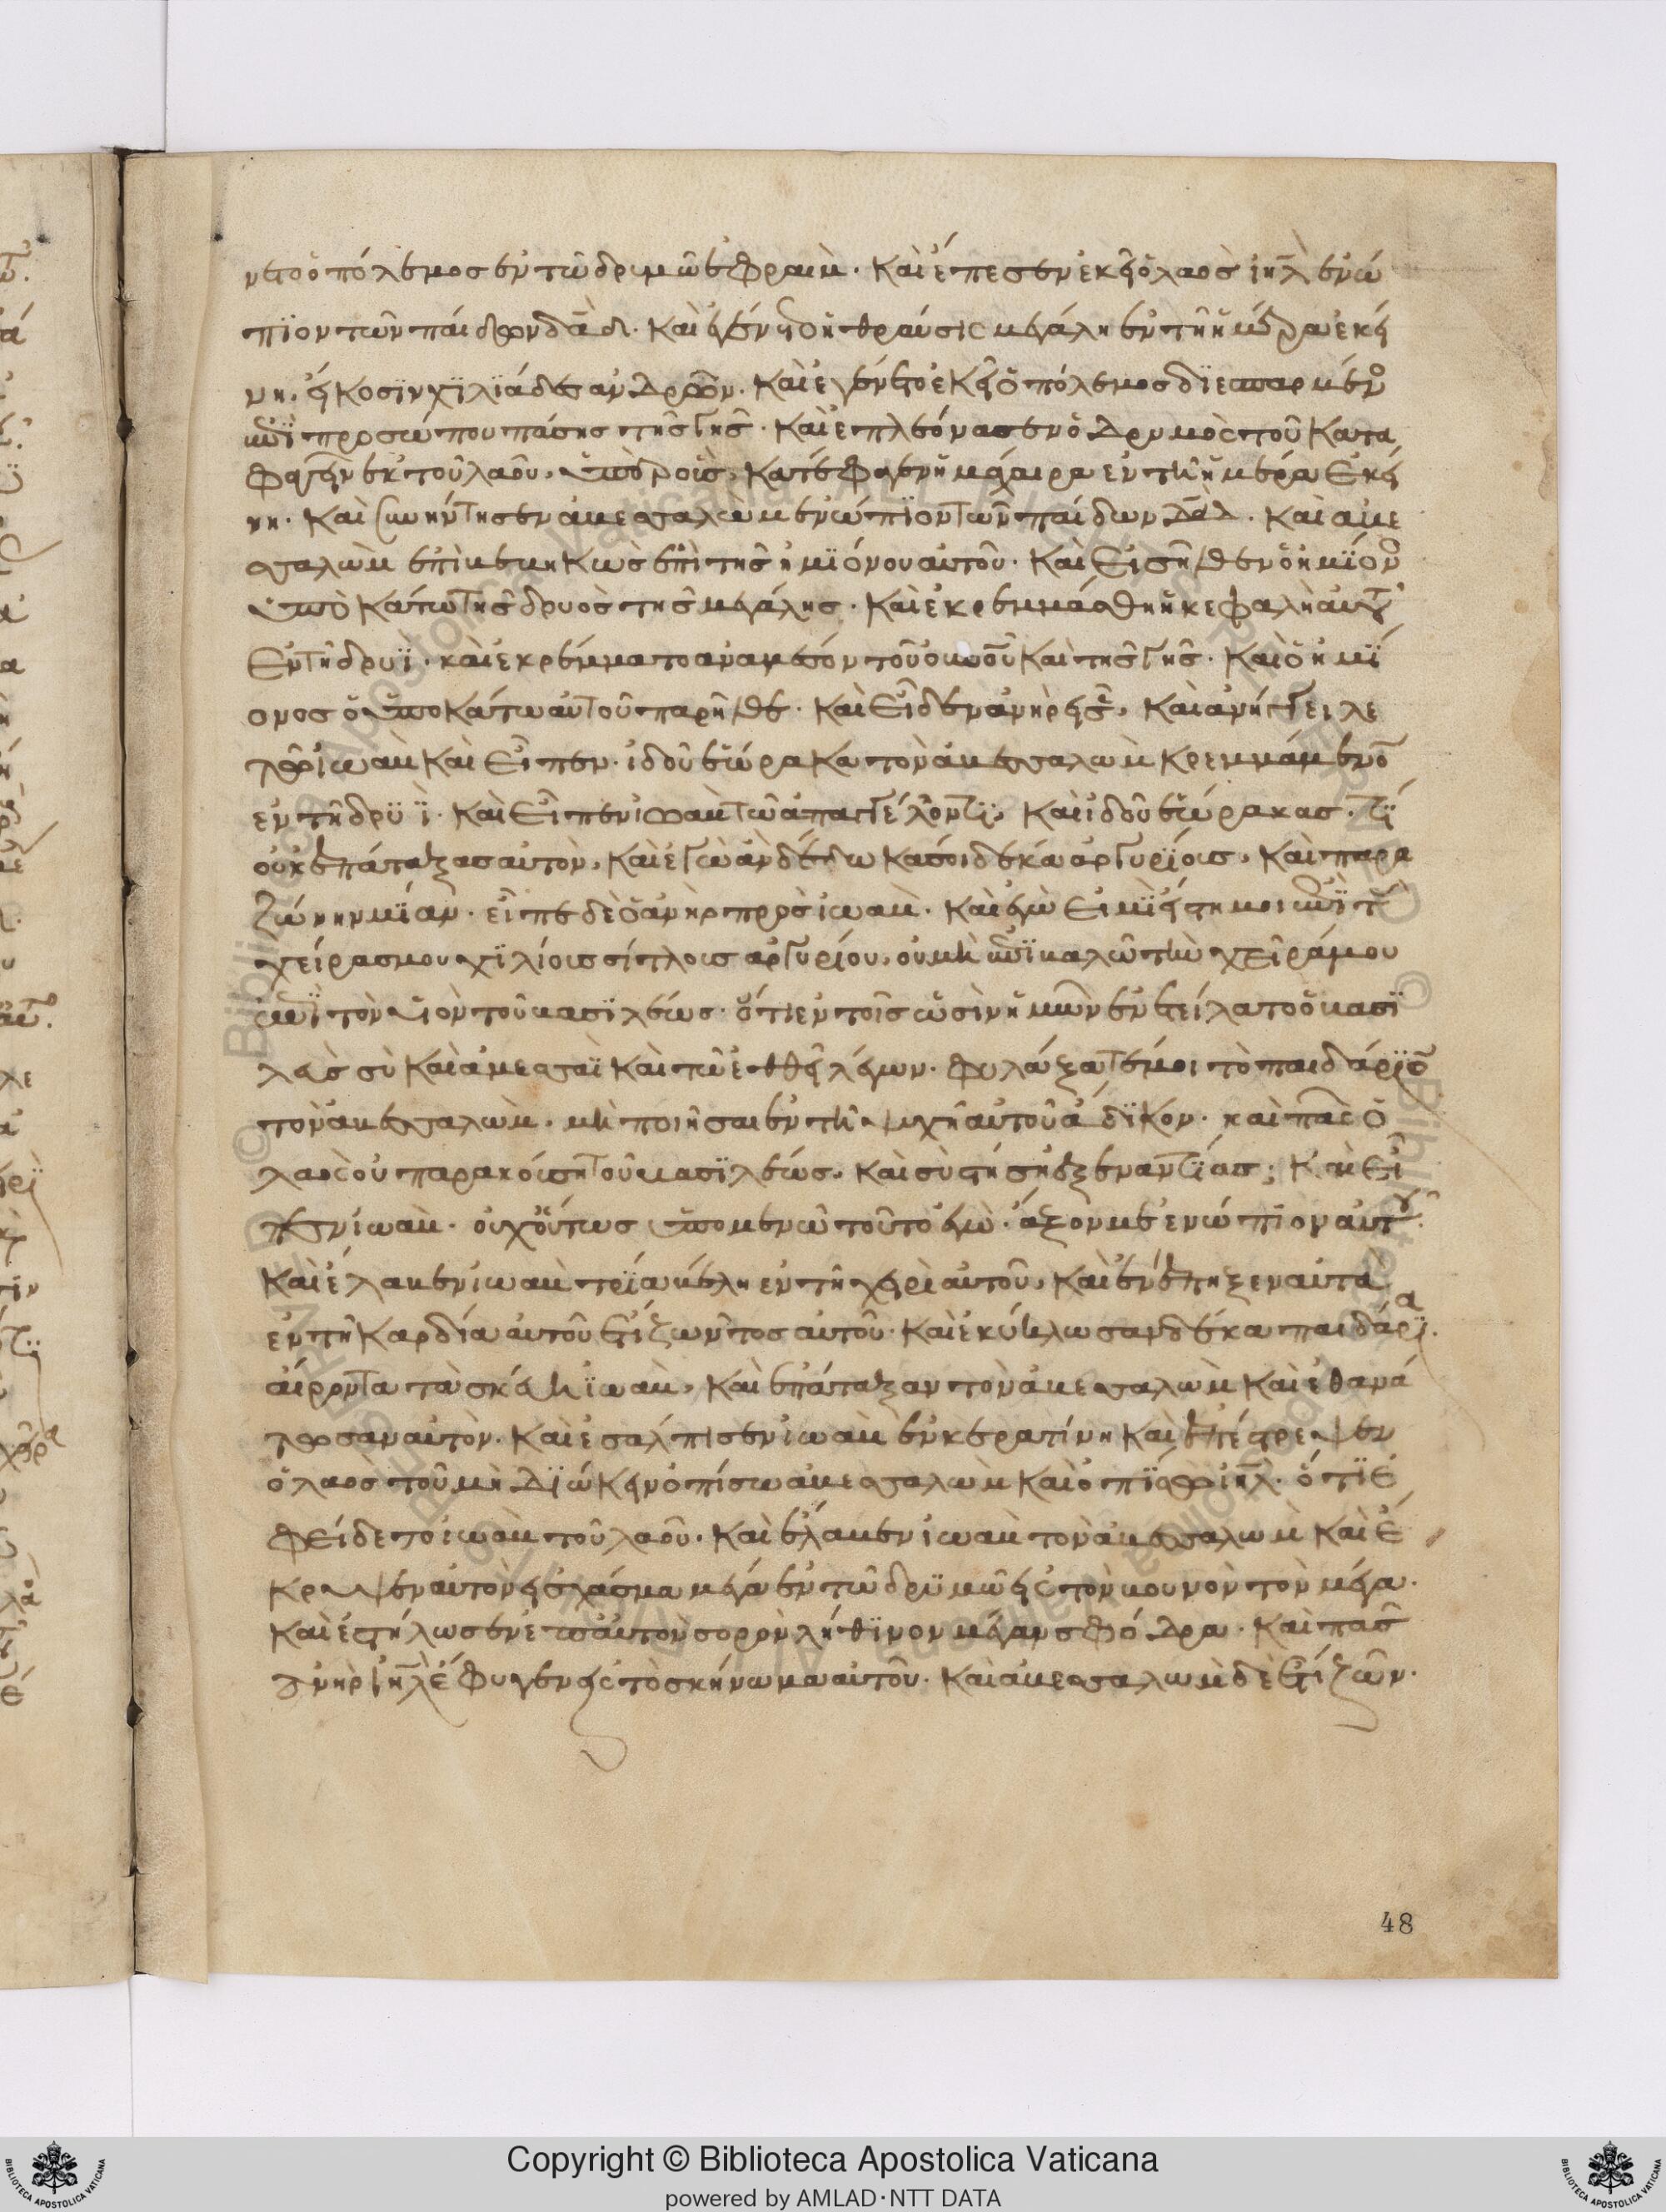 νετο ὁ πόλεμος ἐν τῶ δρυμῶ ἐφραὶμ. καὶ ἔπεσεν ἐκεῖ ὁ λαὸς ἰηλ ἐνώ
πϊον τῶν παίδων δαδ. καὶ ἐγένετο ἡ θραύσις μεγάλη ἐν τῆ ἡμέρα ἐκεί
νη. εἴκοσϊν χϊλϊάδες ἀνδρῶν. καὶ ἐγένετο ἐκεῖ ὁ πόλεμος δϊεσπαρμένο
ἐπῒ προσώπου πάσης τῆς γῆς. καὶ ἐπλεόνασεν ὁ δρυμὸς τοῦ κατα
φαγεῖν ἐκ τοῦ λαοῦ, ὑπὲρ οὓς κατέφαγεν ἡ μάχαιρα ἐν τῆ ἡμέρα ἐκεί
νη. καὶ συνήντησεν ἀβεσσαλὼμ ἐνώπϊον τῶν παίδων δαδ. καὶ ἀβε
σσαλὼμ ἐπὶβεβηκὼς ἐπὶ τῆς ἡμϊόνου αὐτοῦ. καὶ εἰσῆλθεν ὁ ἡμΐονο
ὑπὸ κάτω τῆς δρυὸς τῆς μεγάλης. καὶ ἐκρεμμάσθη ἡ κεφαλὴ αὐτοῦ
ἐν τῆ δρυῒ. καὶ ἐκρέμματο ἀναμέσον τοῦ οὐνοῦ καὶ τῆς γῆς. καὶ ὁ ἡμΐ
ονος ὁ ὑποκάτω αὐτοῦ παρῆλθε. καὶ εἶδεν ἀνὴρ εἷς, καὶ ἀνήγγειλε
τῶ ἰωὰβ καὶ εἶπεν. ἰδοῦ ἑώρακα τὸν ἀβεσσαλὼμ κρεμμάμενο
ἐν τῆ δρυῒ. καὶ εἶπεν ἰωὰβ τῶ ἀπαγγέλοντϊ, καὶ ἰδοῦ ἑώρακας. τΐ
οὐκ ἐπάταξας αὐτὸν, καὶ ἐγὼ ἂν δέδωκά σοι δέκα ἀργυρΐους, καὶ παρα
ζώνην μΐαν. εἶπε δὲ ὁ ἀνὴρ πρὸς ἰωὰβ. καὶ ἐγὼ εἰμῒ ἵστημι ἐπῒ τὰς
χείρας μου χϊλίους σίκλους ἀργυρίου, οὐ μὴ ἐπϊβαλῶ τὴν χεῖρά μου
ἐπῒ τὸν υἱὸν τοῦ βασϊλέως. ὅτι ἐν τοῖς ὠσὶν ἡμῶν ἐνετείλατο ὁ βασϊ
λεύς σὺ καὶ ἀβεσσαῒ καὶ τῶ ἐθθεῖ λέγων. φυλάξατέ μοι τὸ παιδάρϊο
τὸν ἀβεσσαλὼμ. μὴ ποιῆσαι ἐν τῆ ψυχῆ αὐτοῦ ἄδϊκον. καὶ πᾶς ὁ
λαὸς οὐ παρακούση τοῦ βασϊλέως, καὶ σὺ στήση ἐξ ἐναντΐας; καὶ εἶ
πεν ἰωὰβ. οὐχ οὕτως ὑπομενῶ τοῦτο ἐγὼ. ἄξον με ἐνώπϊον αὐτοῦ.
καὶ ἔλαβεν ἰωὰβ τρΐα βέλη ἐν τῆ χειρὶ αὐτοῦ, καὶ ἐνέπηξεν αὐτὰ
ἐν τῆ καρδία αὐτοῦ ἔτϊ ζῶντος αὐτοῦ. καὶ ἐκύκλωσαν δέκα παιδάρϊα
αἴροντα τὰ σκεύη ἰωὰβ, καὶ ἐπάταξαν τὸν ἀβεσσαλὼμ καὶ ἐθανά
τωσαν αὐτὸν. καὶ ἐσάλπισεν ἰωὰβ ἐν κερατίνη καὶ ἐπέστρεψεν
ὁ λαὸς τοῦ μὴ δϊώκειν ὀπίσω ἀβεσσαλὼμ καὶ ὀπΐσω ἰηλ. ὅτϊ ἐ
φείδετο ἰωὰβ τοῦ λαοῦ. καὶ ἔλαβεν ἰωὰβ τὸν ἀβεσσαλὼμ καὶ ἔ
κρυψεν αὐτὸν εἰς χάσμα μέγα ἐν τῶ δρυμῶ εἰς τὸν βουνὸν τὸν μέγα.
καὶ ἐστήλωσεν ἐπ αὐτὸν σορὸν λήθϊνον μέγαν σφόδρα. καὶ πᾶς
ἀνὴρ ἰηλ ἔφυγεν εἰς τὸ σκήνωμα αὐτοῦ. καὶ ἀβεσσαλὼμ δὲ ἔτϊ ζῶν.
48
Copyright © Biblioteca Apostolica Vaticana
powered by AMLAD·NTT DATA